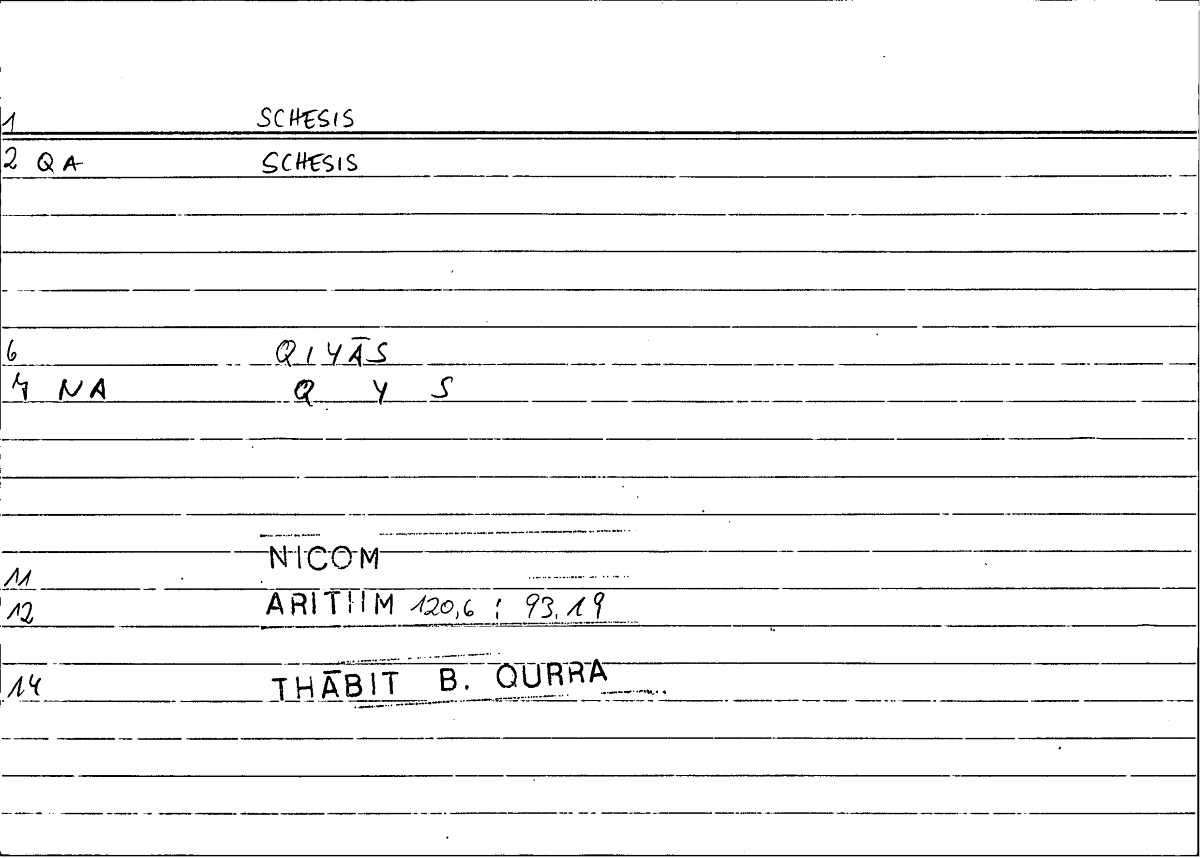 1 SCHESIS
2 QA SCHESIS
6 QIYĀS
7 NA Q Y S
11 NICOM
12 ARITHM 120,6 ; 93,19
14 THĀBIT B. QURRA